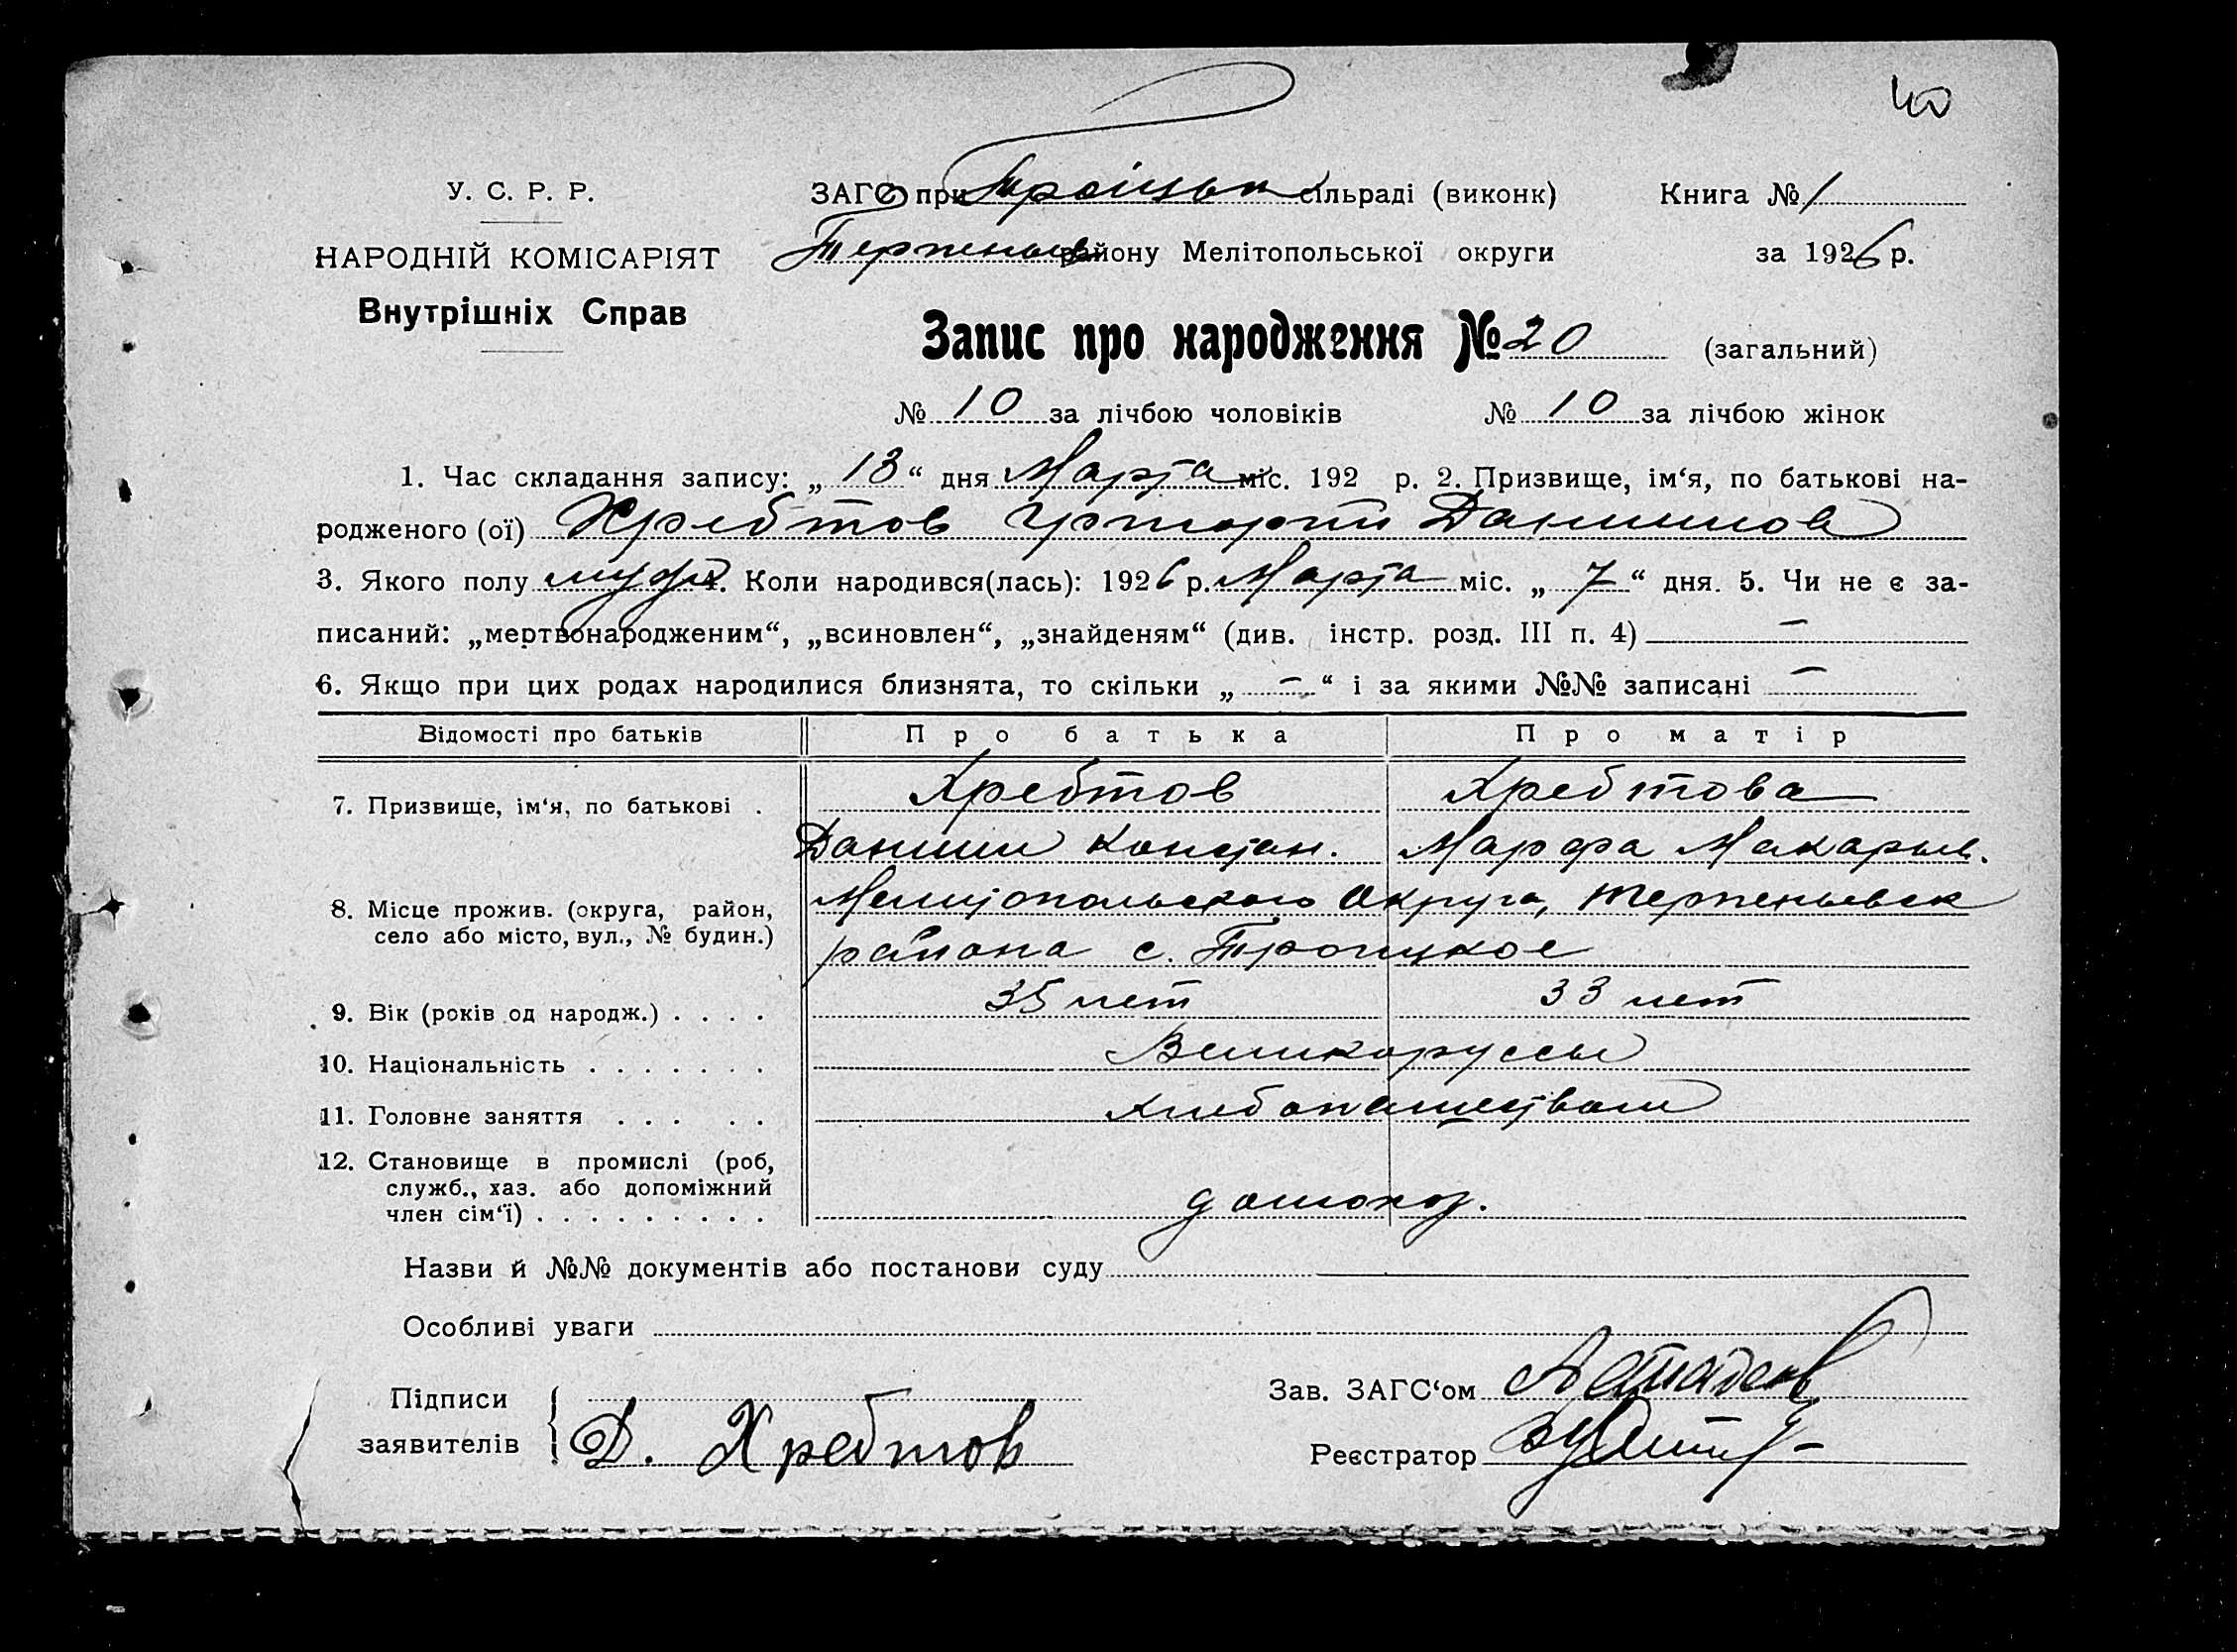 40
У. С. Р. Р.
ЗАГС при Троїцьк сільраді (виконк)
Книга № 1
НАРОДНІЙ КОМІСАРІЯТ
Терпеньев району Мелітопольської округи
за 1926 р.
Внутрішніх Справ
Запис про народження № 20 (загальний)
№ 10 за лічбою чоловіків № 10 за лічбою жінок
1. Час складання запису: „ 13 “ дня Марта міс. 192 р. 2. Призвище, ім‘я, по батькові на-
родженого (ої) Хребтов Григорий Данилов
3. Якого полу муж 4. Коли народився(лась): 1926 р. Марта міс. „ 7 “ дня. 5. Чи не є за-
писаний: „мертвонародженим“, „всиновлен“, „знайденям“ (див. інстр. розд. III п. 4) —
6. Якщо при цих родах народилися близнята, то скільки „ — “ і за якими №№ записані —
Відомості про батьків Про батька Про матір
7. Призвище, ім‘я, по батькові . Хребтов Хребтова
Даниил Констан. Марфа Макарьев.
8. Місце прожив. (округа, район, Мелитопольского Округа, Терпеньевск
село або місто, вул., № будин.) района с. Троицкое
9. Вік (років од народж.) . . . . 35 лет 33 лет
10. Національність . . . . . . . Великоруссы
11. Головне заняття . . . . . Хлебопашеством
12. Становище в промислі (роб,
служб., хаз. або допоміжний
член сім‘ї) . . . . . . . . . домохоз.
Назви й №№ документів або постанови суду
Особливі уваги
Підписи
заявителів
Д. Хребтов
Зав. ЗАГС‘ом
Реєстратор